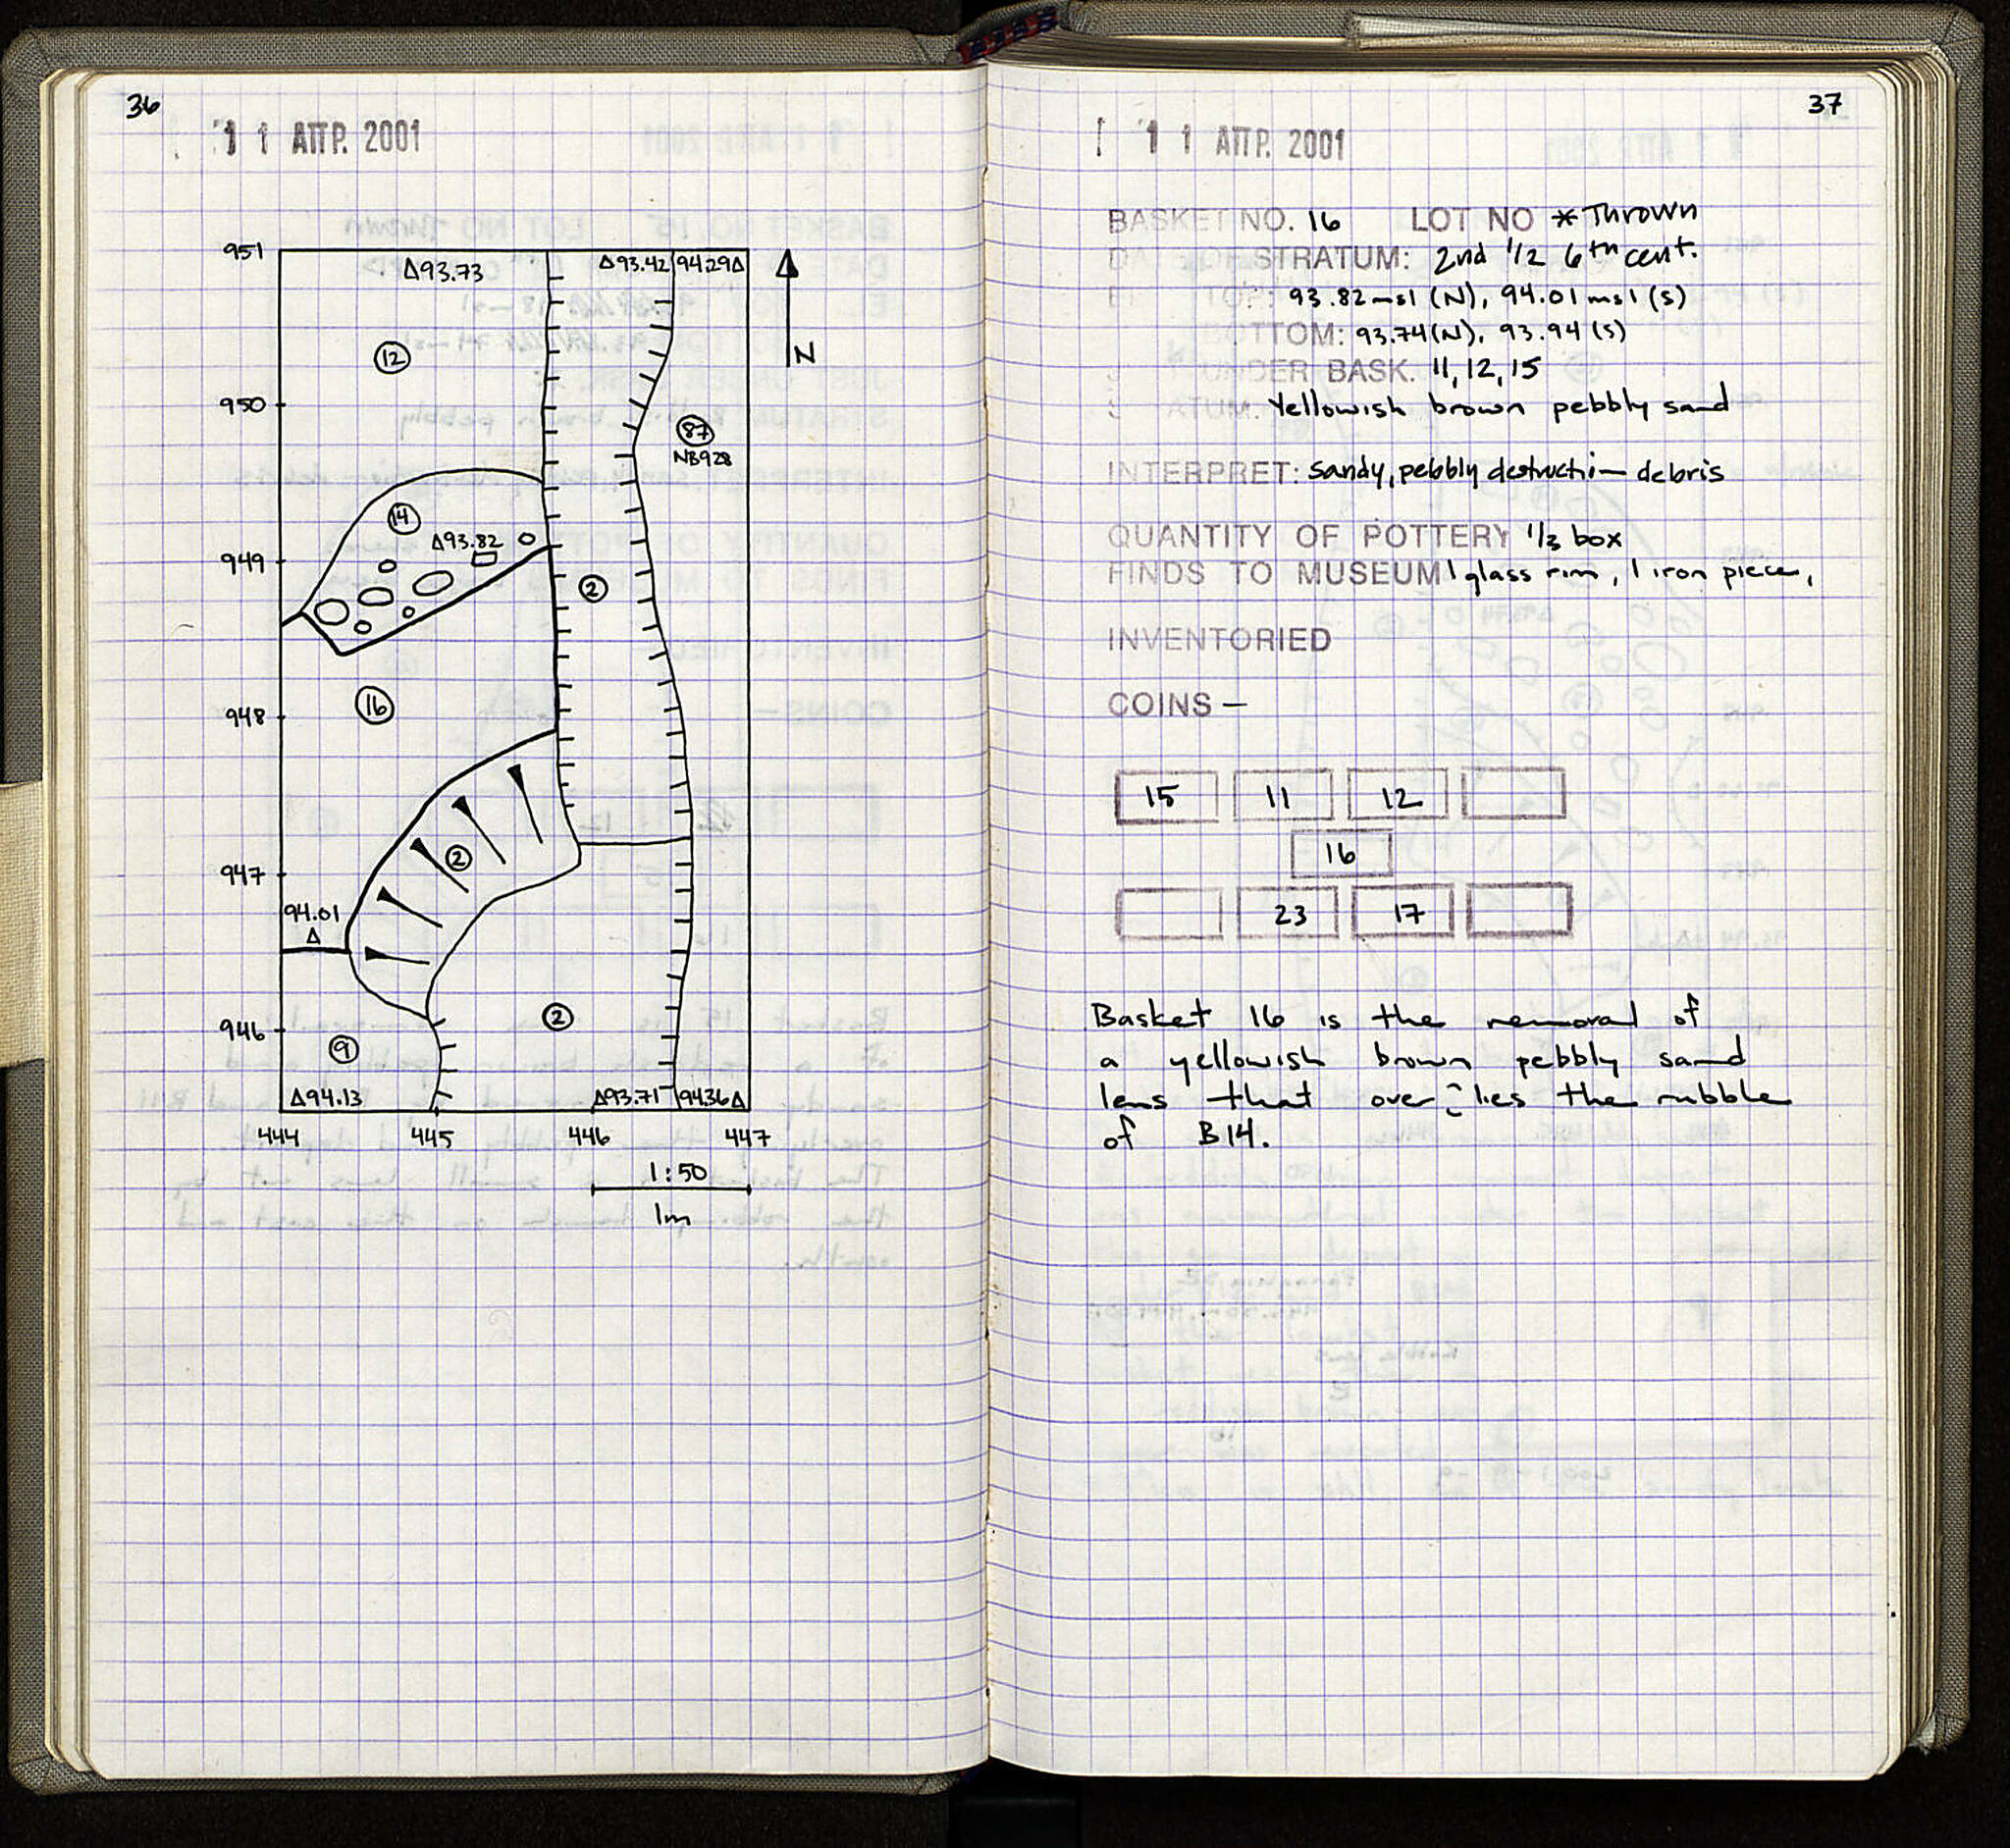 36
11 ΑΠΡ. 2001
951
Δ93.73
Δ93.42
94.29Δ
N
12
950
87
NB928
14
Δ93.82
949
2
16
948
2
947
94.01
Δ
2
946
9
Δ94.13
Δ93.71
94.36Δ
444 445 446 447
1:50
1m
37
11 ΑΠΡ. 2001
BASKET NO. 16 LOT NO * Thrown
STRATUM: 2nd 1/2 6th cent.
TOP: 93.82 msl (N), 94.01 msl (S)
BOTTOM: 93.74 (N), 93.94 (S)
UNDER BASK. 11, 12, 15
ATUM. Yellowish brown pebbly sand
INTERPRET: sandy, pebbly destruction debris
QUANTITY OF POTTERY 1/3 box
FINDS TO MUSEUM 1 glass rim, 1 iron piece,
INVENTORIED
COINS –
15 11 12
16
23 17
Basket 16 is the removal of
a yellowish brown pebbly sand
lens that over lies the rubble
of B14.